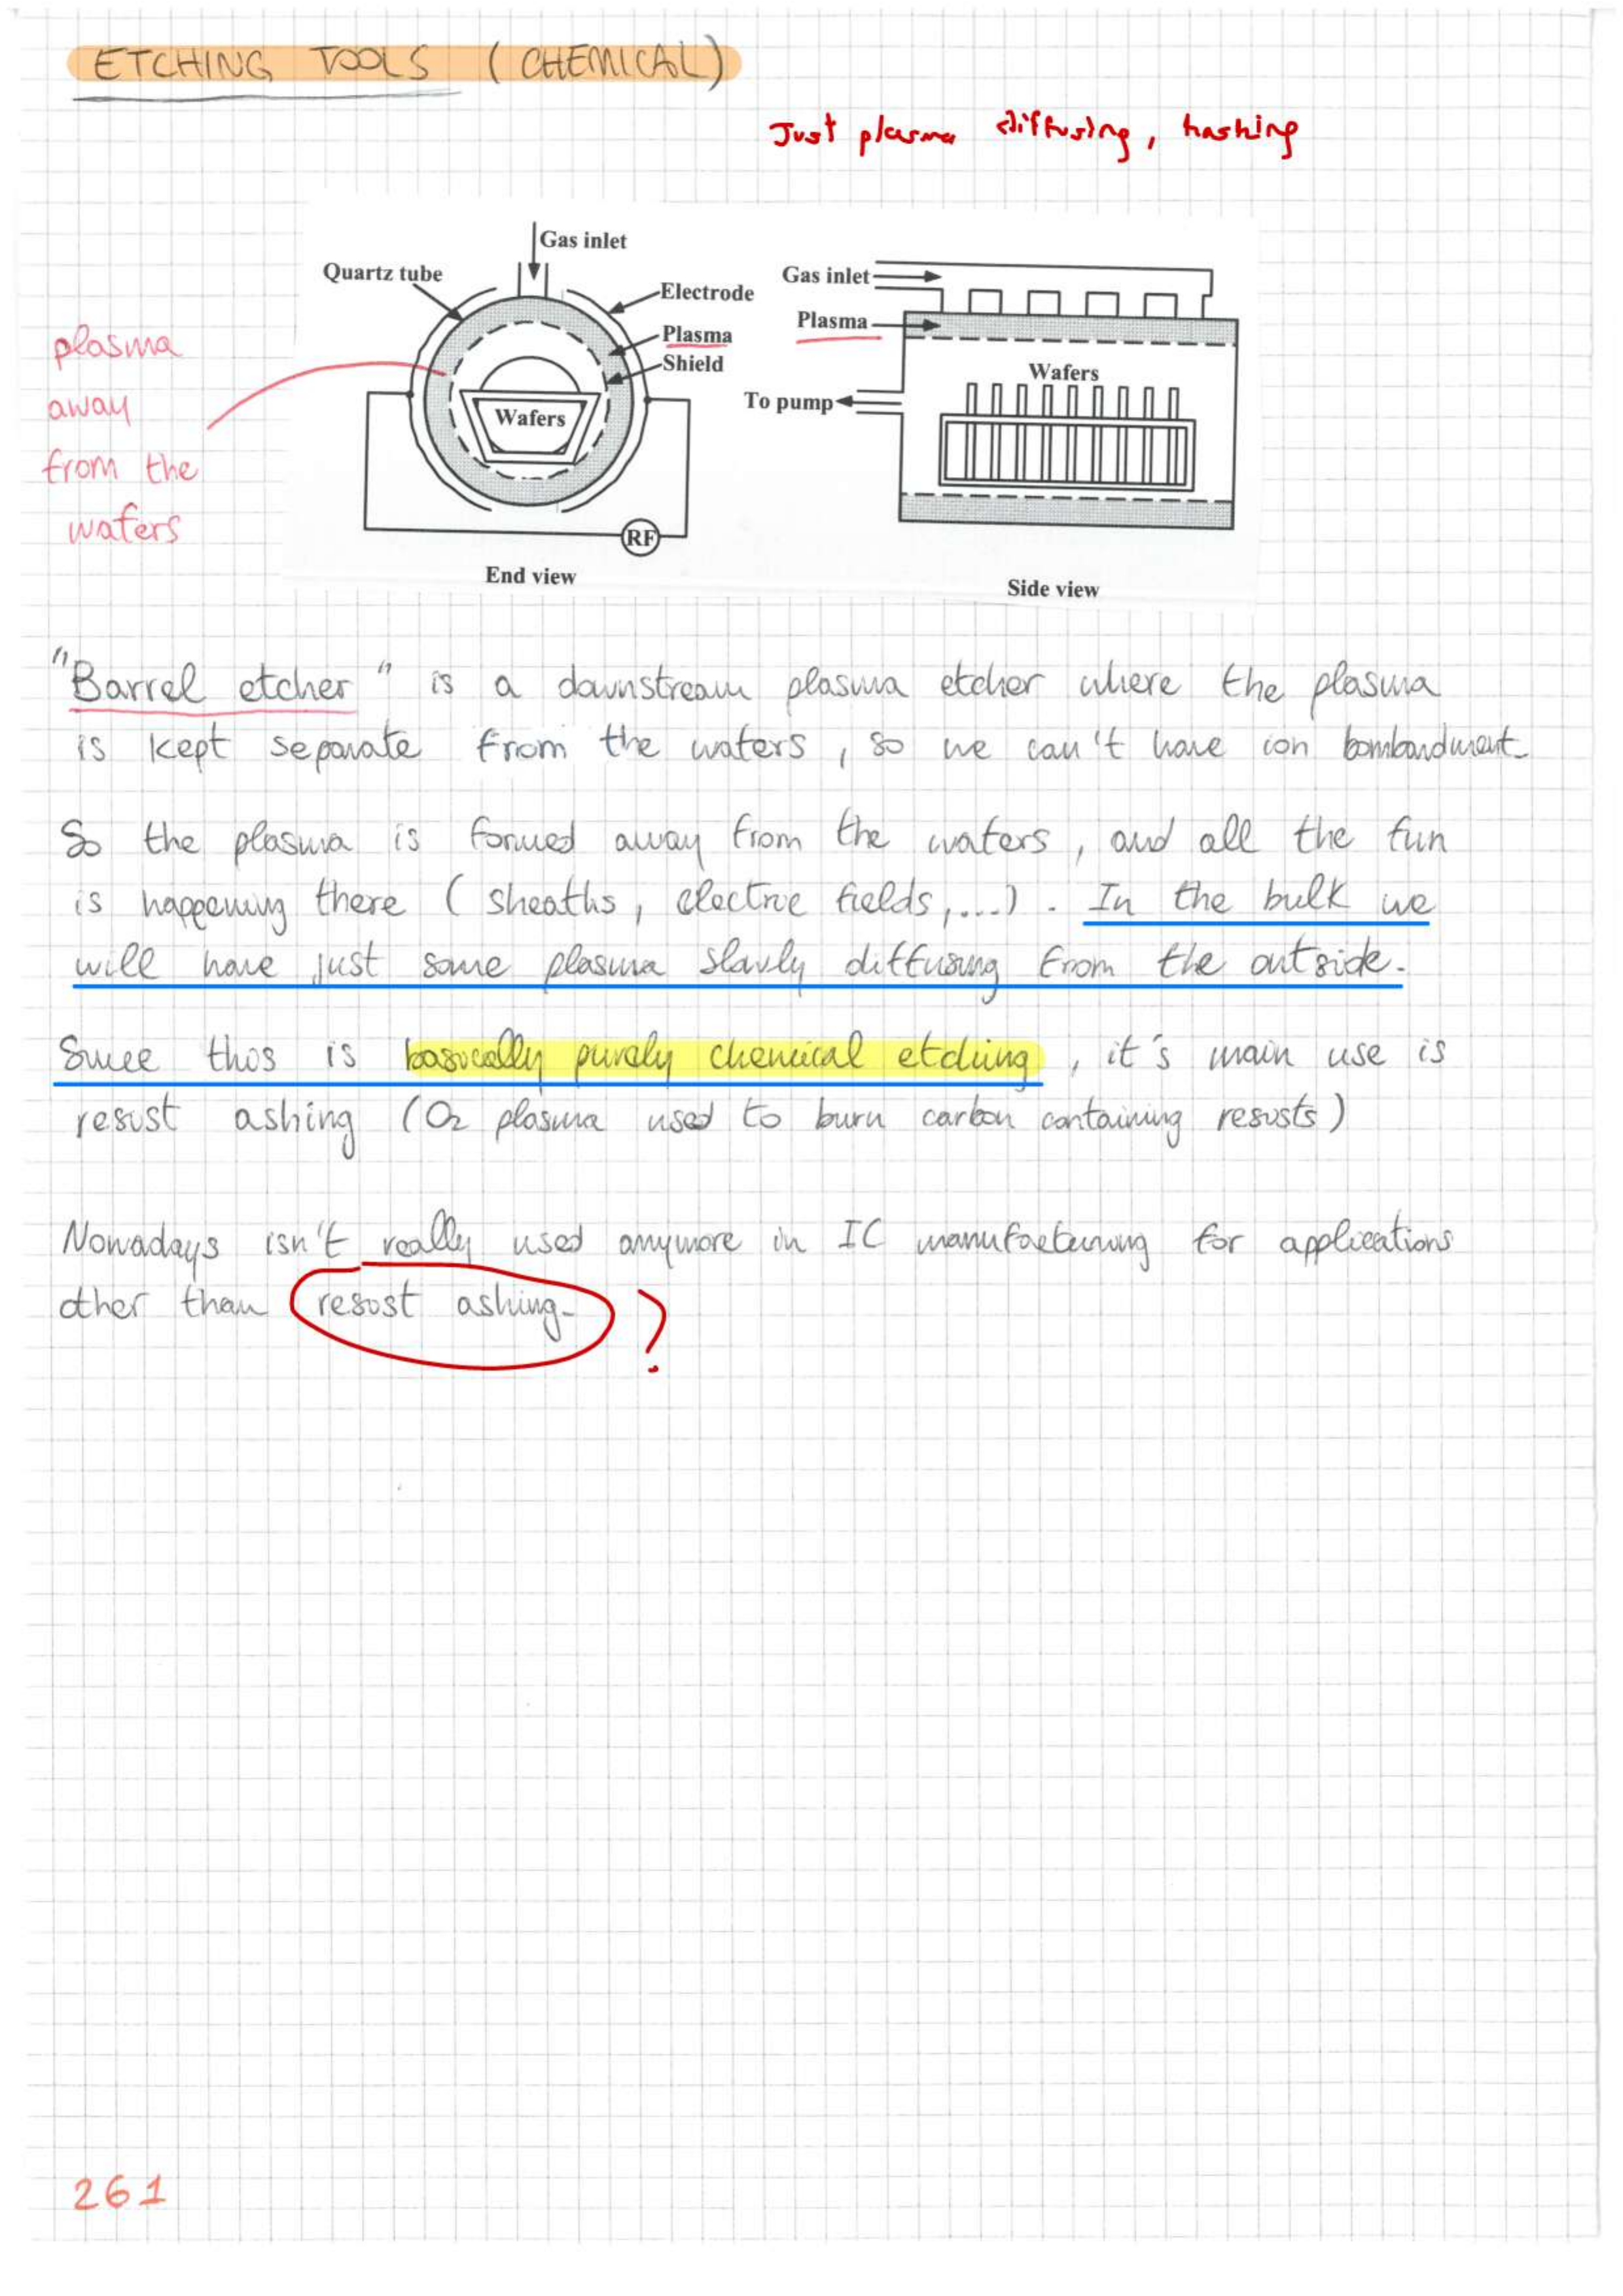 ETCHING TOOLS (CHEMICAL)
Just plasma diffusing, hashing
Gas inlet
Quartz tube
Electrode
Plasma
Shield
Wafers
RF
End view
Gas inlet
Plasma
Wafers
To pump
Side view
plasma
away
from the
wafers
"Barrel etcher" is a downstream plasma etcher where the plasma
is kept separate from the wafers, so we can't have ion bombardment.
So the plasma is formed away from the wafers, and all the fun
is happening there (sheaths, electric fields,...). In the bulk we
will have just some plasma slowly diffusing from the outside.
Since this is basically purely chemical etching, it's main use is
resist ashing (O2 plasma used to burn carbon containing resists)
Nowadays isn't really used anymore in IC manufacturing for applications
other than resist ashing. ?
261